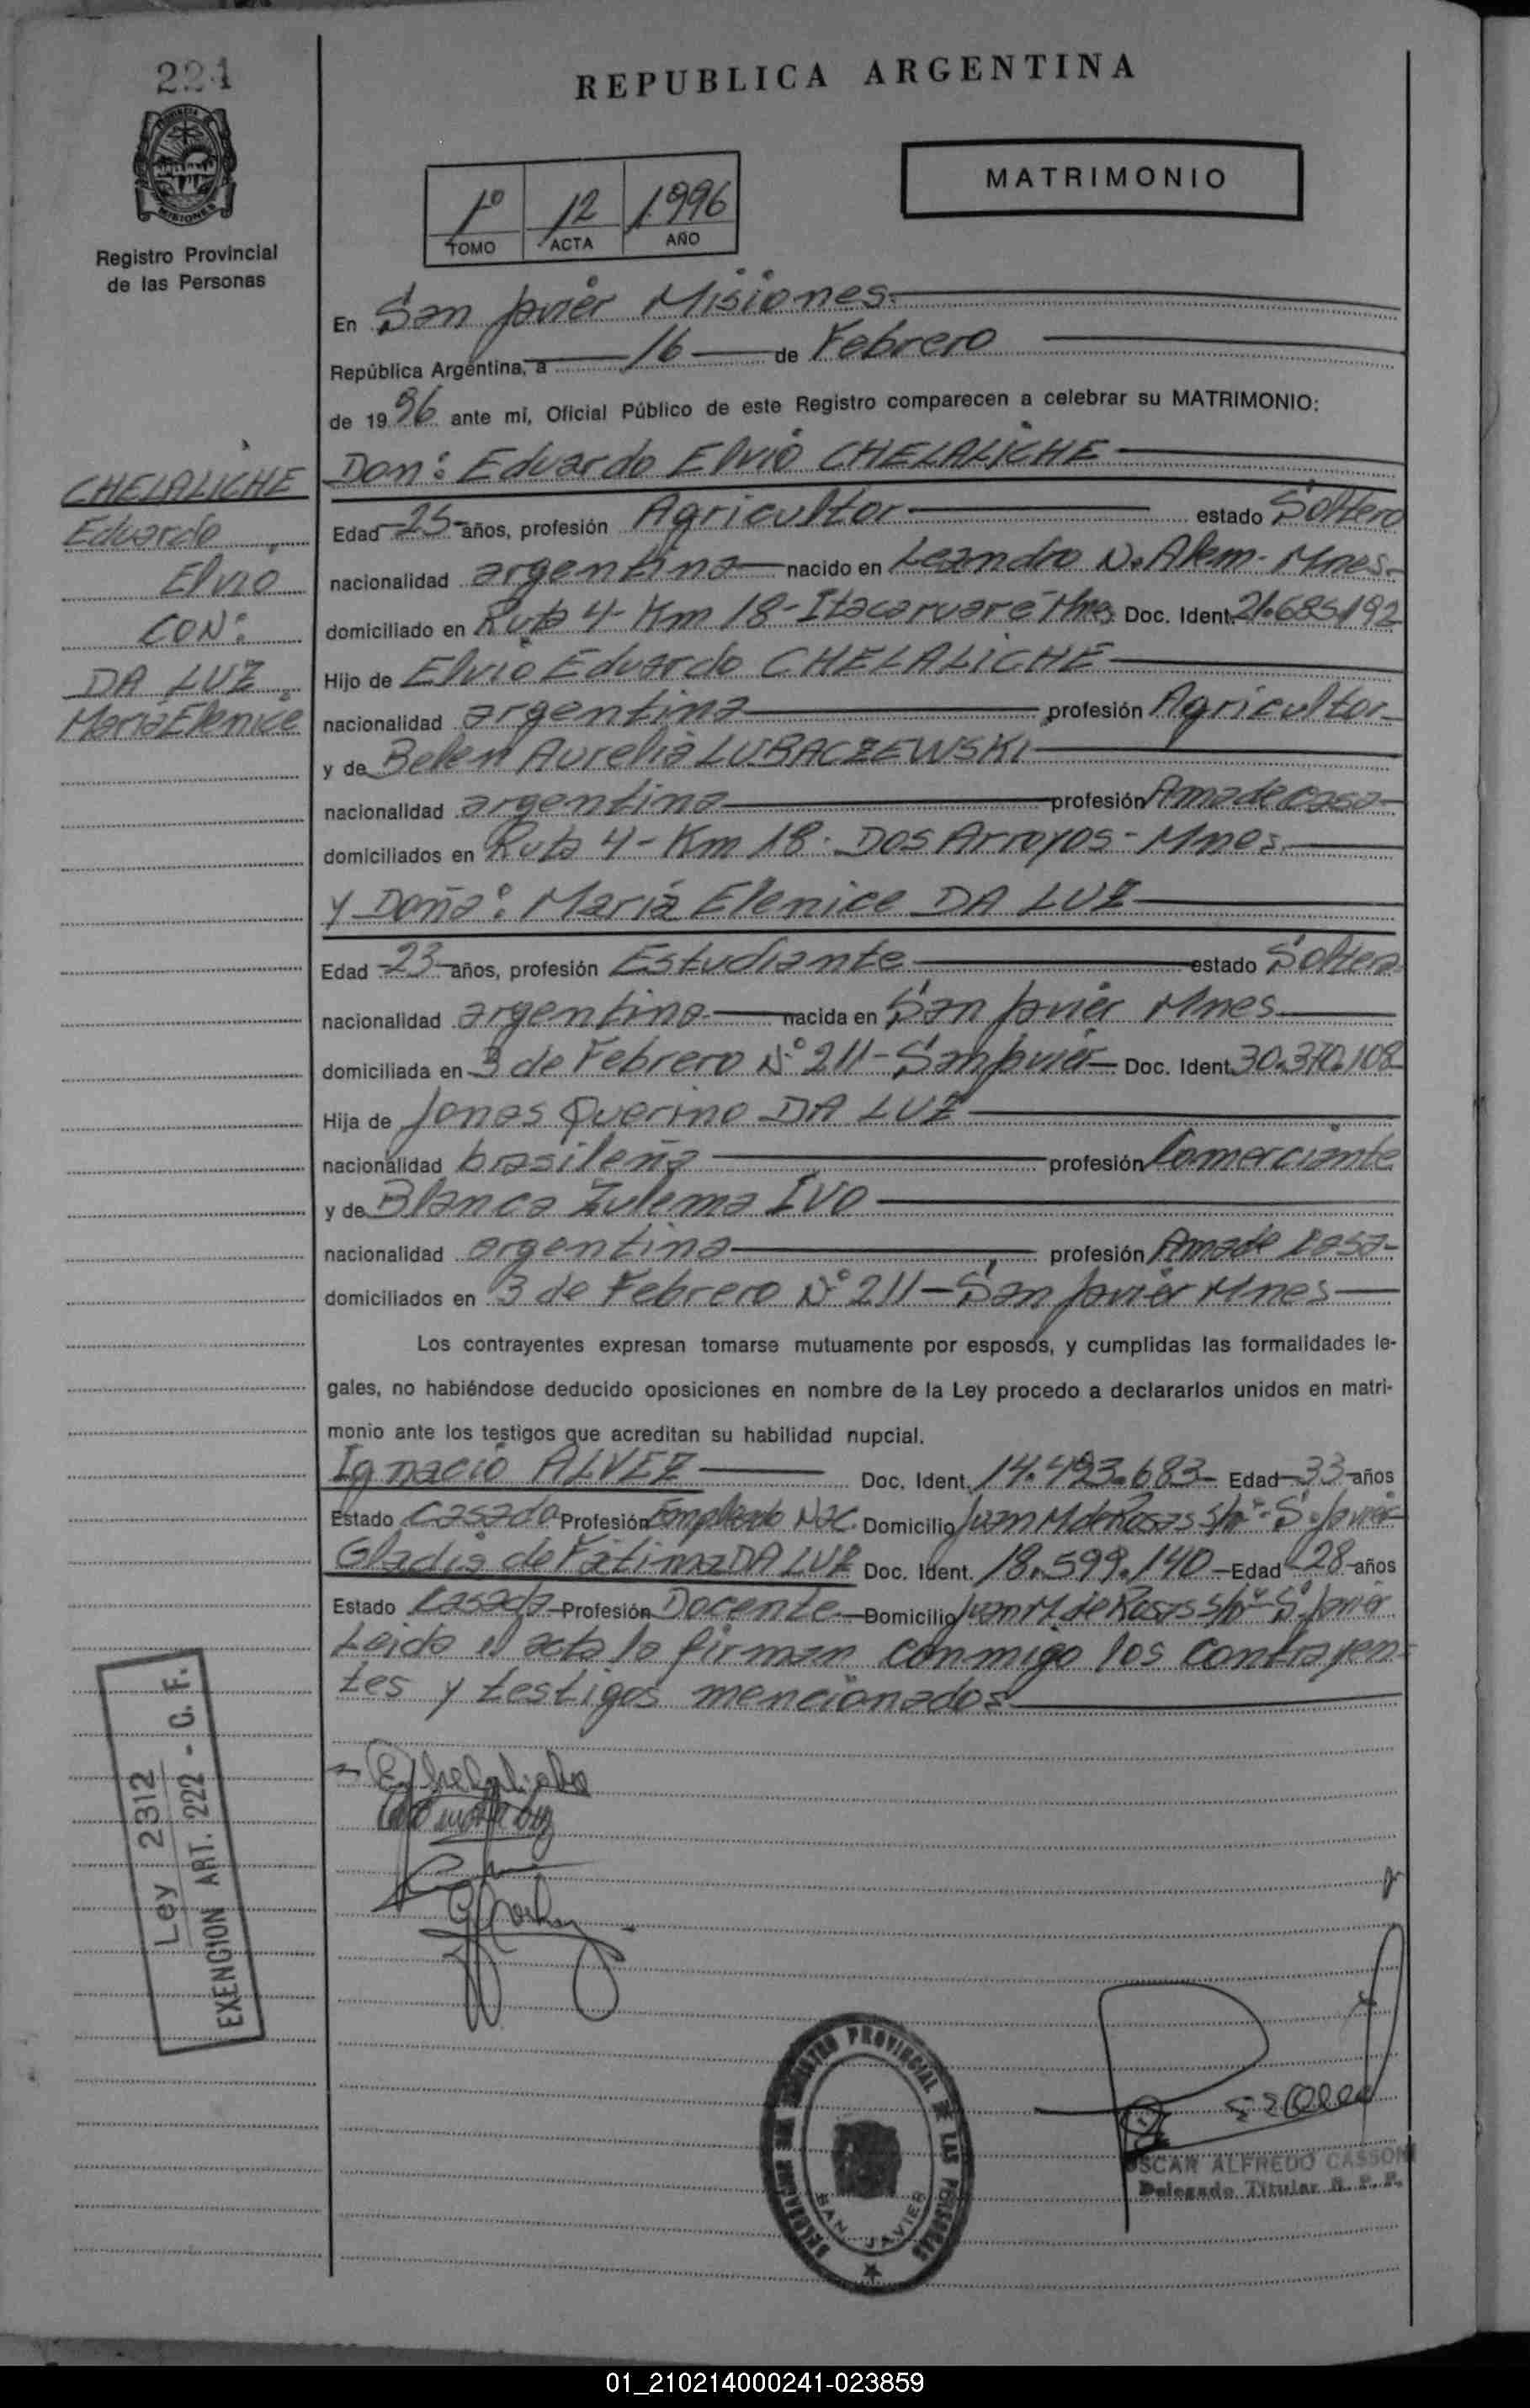 224
REPUBLICA ARGENTINA
MATRIMONIO
PROVINCIA DE MISIONES
Registro Provincial
de las Personas
1º 12 1996
TOMO ACTA AÑO
En San Javier Misiones.
República Argentina, a 16 de Febrero
de 1996 ante mi, Oficial Público de este Registro comparecen a celebrar su MATRIMONIO:
CHELALICHE
Eduardo
Elvio
CON:
DA LUZ
María Elenice
Don: Eduardo Elvio CHELALICHE
Edad 25 años, profesión Agricultor estado Soltero
nacionalidad argentina nacido en Leandro N. Alem - Mnes.
domiciliado en Ruta 4 - Km 18 - Itacaruaré Mnes. Doc. Ident. 21.685.192
Hijo de Elvio Eduardo CHELALICHE
nacionalidad argentina profesión Agricultor
y de Belen Aurelia LUBACZEWSKI
nacionalidad argentina profesión Ama de casa
domiciliados en Ruta 4 - Km 18 - Dos Arroyos - Mnes.
y Doña: María Elenice DA LUZ
Edad 23 años, profesión Estudiante estado Soltera
nacionalidad argentina nacida en San Javier Mnes
domiciliada en 3 de Febrero Nº 211 - San Javier Doc. Ident. 30.370.108
Hija de Jonas Querino DA LUZ
nacionalidad brasileña profesión Comerciante
y de Blanca Zulema IVO
nacionalidad argentina profesión Ama de casa
domiciliados en 3 de Febrero Nº 211 - San Javier Mnes
Los contrayentes expresan tomarse mutuamente por esposos, y cumplidas las formalidades le-
gales, no habiéndose deducido oposiciones en nombre de la Ley procedo a declararlos unidos en matri-
monio ante los testigos que acreditan su habilidad nupcial.
Ignacio ALVEZ Doc. Ident. 14.493.683 Edad 33 años
Estado Casado Profesión Empleado Nac. Domicilio Juan M de Rosas s/nº - S. Javier
Gladis de Fátima DA LUZ Doc. Ident. 18.599.140 Edad 28 años
Estado Casada Profesión Docente Domicilio Juan M de Rosas s/nº - S. Javier
Leida el acta la firman conmigo los contrayen-
tes y testigos mencionados
Ley 2312
EXENCION ART. 222 - C. F.
REGISTRO PROVINCIAL DE LAS PERSONAS
SAN JAVIER
OSCAR ALFREDO CASSONI
Delegado Titular R. P. P.
01_210214000241-023859